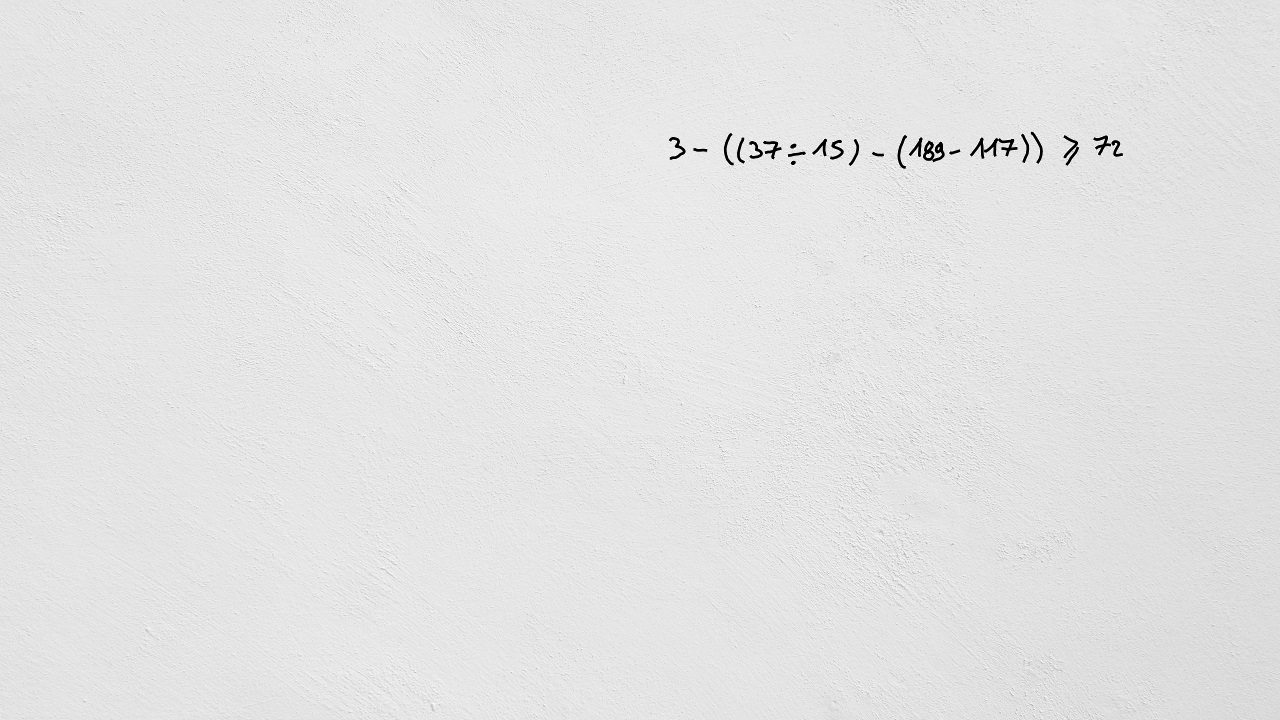 3 - ((37 ÷ 15) - (189 - 117)) ⩾ 72